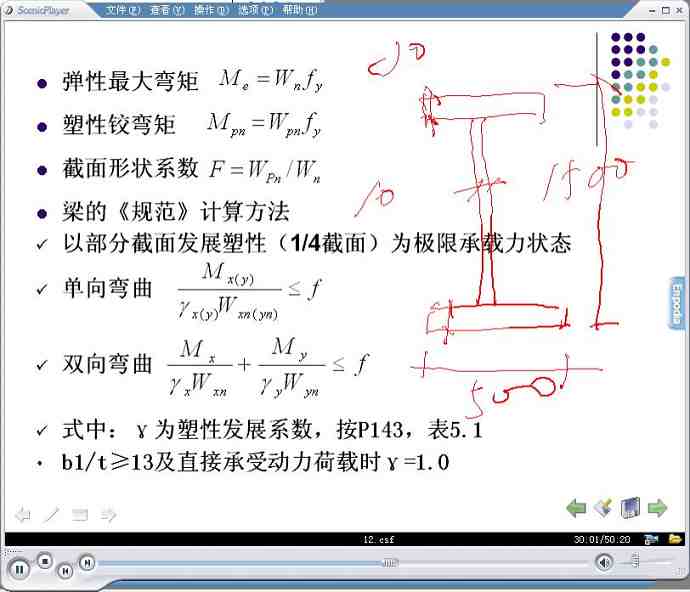 ScenicPlayer 文件(F) 查看(V) 操作(D) 选项(T) 帮助(H)
弹性最大弯矩 M_e = W_n f_y
塑性铰弯矩 M_pn = W_pn f_y
截面形状系数 F = W_Pn / W_n
梁的《规范》计算方法
以部分截面发展塑性（1/4截面）为极限承载力状态
单向弯曲 M_x(y) / γ_x(y) W_xn(yn) ≤ f
双向弯曲 M_x / γ_x W_xn + M_y / γ_y W_yn ≤ f
式中：γ为塑性发展系数，按P143，表5.1
b1/t≥13及直接承受动力荷载时γ=1.0
10
1500
500
Enpodia
12.csf 30:01/50:20